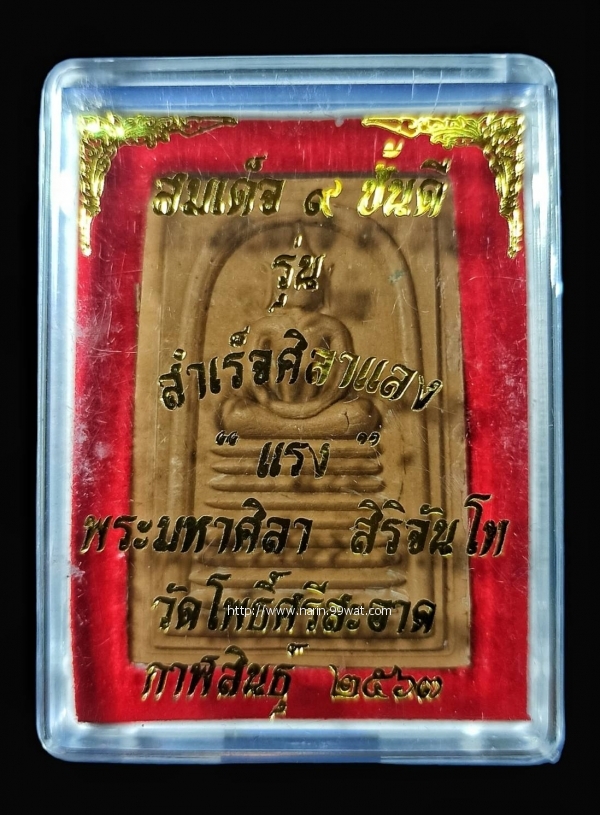 สมเด็จ ๙ ชั้นดี
รุ่น
สำเร็จศิลาแลง
“ แรง ”
พระมหาศิลา สิริจันโท
วัดโพธิ์ศรีสะอาด
http://www.narin.99wat.com/
กาฬสินธุ์ ๒๕๖๓